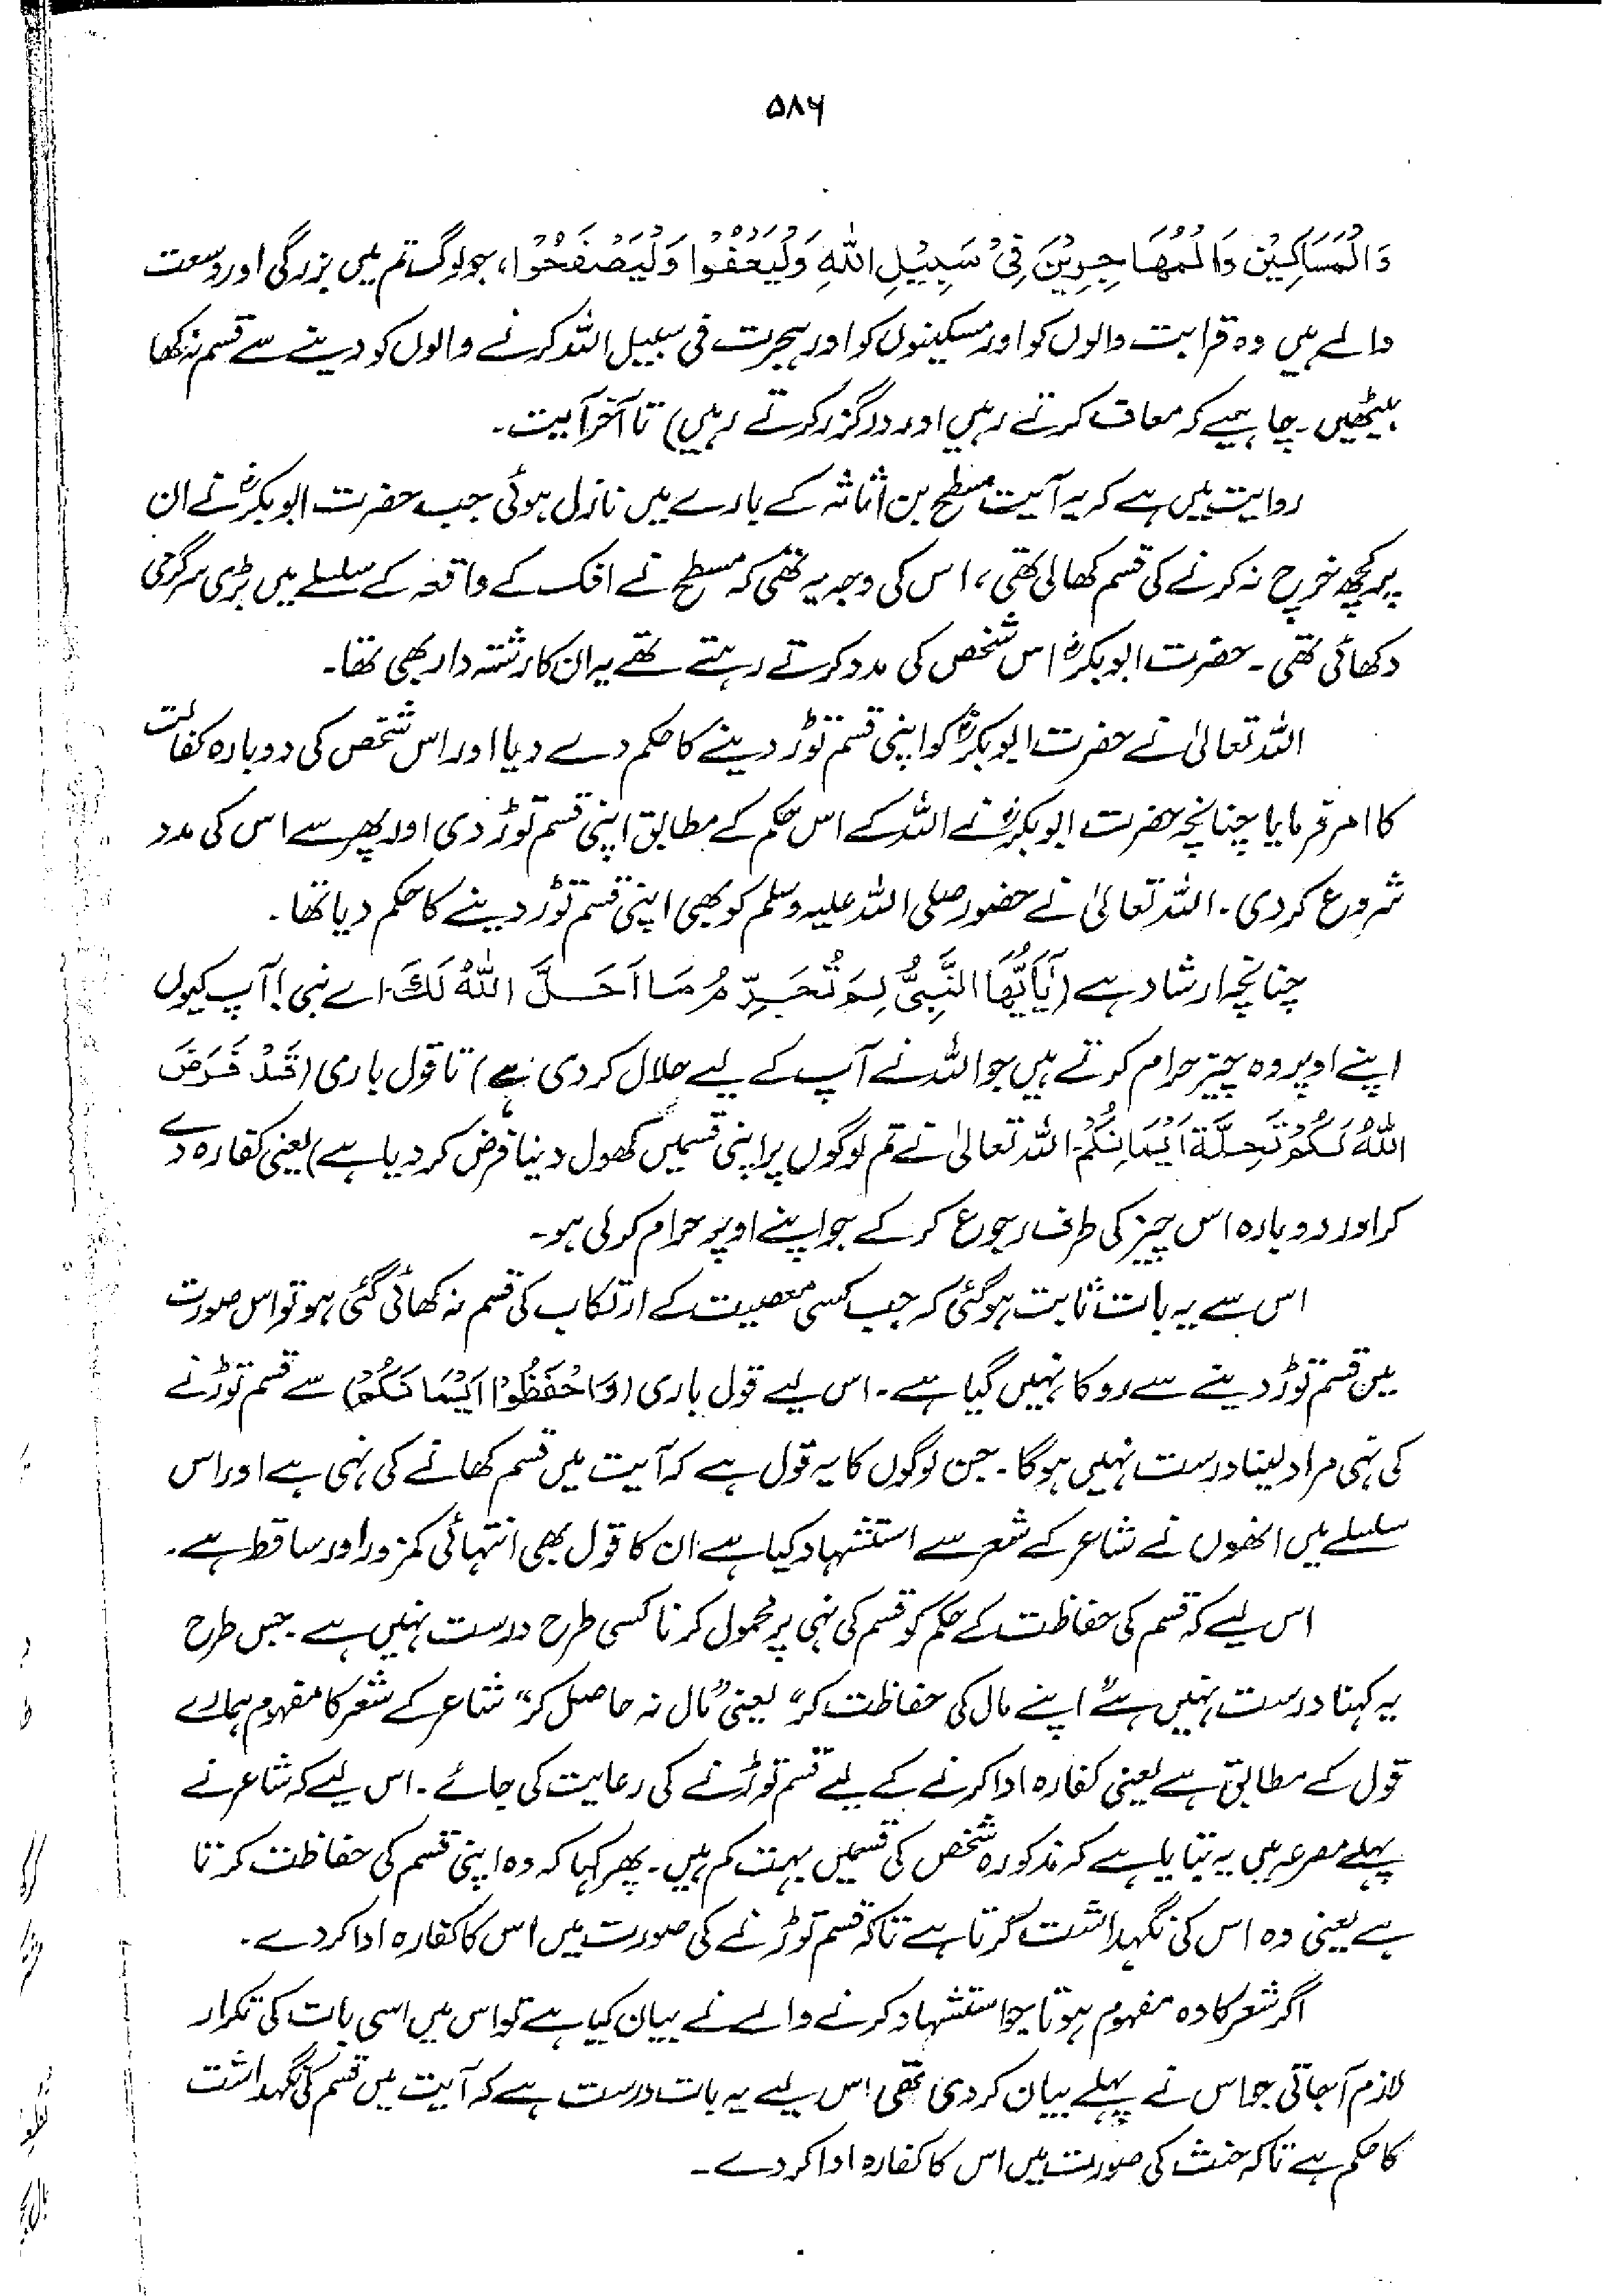 ۵۸۶
وَالْمَسَاكِيْنَ وَالْمُهَاجِرِيْنَ فِيْ سَبِيْلِ اللهِ وَلْيَعْفُوْا وَلْيَصْفَحُوْا، جو لوگ تم میں بزرگی اور وسعت
والے ہیں وہ قرابت والوں کو اور مسکینوں کو اور ہجرت فی سبیل اللہ کرنے والوں کو دینے سے قسم نہ کھا
بیٹھیں۔ چاہیے کہ معاف کرتے رہیں اور درگزر کرتے رہیں) تا آخر آیت۔
روایت میں ہے کہ یہ آیت مسطح بن اثاثہ کے بارے میں نازل ہوئی جب حضرت ابوبکرؓ نے ان
پر کچھ خرچ نہ کرنے کی قسم کھالی تھی، اس کی وجہ یہ تھی کہ مسطح نے افک کے واقعہ کے سلسلے میں بڑی سرگرمی
دکھائی تھی۔ حضرت ابوبکرؓ اس شخص کی مدد کرتے رہتے تھے یہ ان کا رشتہ دار بھی تھا۔
اللہ تعالیٰ نے حضرت ابوبکرؓ کو اپنی قسم توڑ دینے کا حکم دے دیا اور اس شخص کی دوبارہ کفالت
کا امر فرمایا چنانچہ حضرت ابوبکرؓ نے اللہ کے اس حکم کے مطابق اپنی قسم توڑ دی اور پھر سے اس کی مدد
شروع کر دی۔ اللہ تعالیٰ نے حضور صلی اللہ علیہ وسلم کو بھی اپنی قسم توڑ دینے کا حکم دیا تھا۔
چنانچہ ارشاد ہے (يَآ اَيُّهَا النَّبِيُّ لِمَ تُحَرِّمُ مَا اَحَلَّ اللهُ لَكَ۔ اے نبی! آپ کیوں
اپنے اوپر وہ چیز حرام کرتے ہیں جو اللہ نے آپ کے لیے حلال کر دی ہے) تا قول باری (قَدْ فَرَضَ
اللهُ لَكُمْ تَحِلَّةَ اَيْمَانِكُمْ۔ اللہ تعالیٰ نے تم لوگوں پر اپنی قسمیں کھول دینا فرض کر دیا ہے) یعنی کفارہ دے
کر اور دوبارہ اس چیز کی طرف رجوع کر کے جو اپنے اوپر حرام کر لی ہو۔
اس سے یہ بات ثابت ہو گئی کہ جب کسی معصیت کے ارتکاب کی قسم نہ کھائی گئی ہو تو اس صورت
میں قسم توڑ دینے سے روکا نہیں گیا ہے۔ اس لیے قول باری (وَاحْفَظُوْا اَيْمَانَكُمْ) سے قسم توڑنے
کی نہی مراد لینا درست نہیں ہوگا۔ جن لوگوں کا یہ قول ہے کہ آیت میں قسم کھانے کی نہی ہے اور اس
سلسلے میں انھوں نے شاعر کے شعر سے استشہاد کیا ہے ان کا قول بھی انتہائی کمزور اور ساقط ہے۔
اس لیے کہ قسم کی حفاظت کے حکم کو قسم کی نہی پر محمول کرنا کسی طرح درست نہیں ہے۔ جس طرح
یہ کہنا درست نہیں ہے "اپنے مال کی حفاظت کر" یعنی "مال نہ حاصل کر" شاعر کے شعر کا مفہوم ہمارے
قول کے مطابق ہے یعنی کفارہ ادا کرنے کے لیے قسم توڑنے کی رعایت کی جائے۔ اس لیے کہ شاعر نے
پہلے مصرعہ میں یہ بتایا ہے کہ مذکورہ شخص کی قسمیں بہت کم ہیں۔ پھر کہا کہ وہ اپنی قسم کی حفاظت کرتا
ہے یعنی وہ اس کی نگہداشت کرتا ہے تاکہ قسم توڑنے کی صورت میں اس کا کفارہ ادا کر دے۔
اگر شعر کا وہ مفہوم ہوتا جو استشہاد کرنے والے نے بیان کیا ہے تو اس میں اسی بات کی تکرار
لازم آجاتی جو اس نے پہلے بیان کر دی تھی اس لیے یہ بات درست ہے کہ آیت میں قسم کی نگہداشت
کا حکم ہے تاکہ حنث کی صورت میں اس کا کفارہ ادا کر دے۔